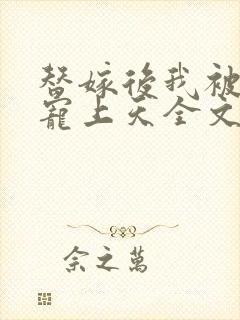 替嫁後我被
寵上天全文
余之萬